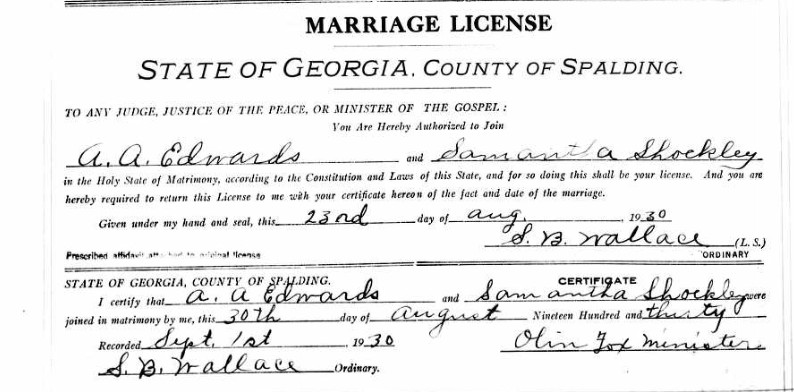 MARRIAGE LICENSE
STATE OF GEORGIA, COUNTY OF SPALDING.
TO ANY JUDGE, JUSTICE OF THE PEACE, OR MINISTER OF THE GOSPEL:
You Are Hereby Authorized to Join
A. A. Edwards and Samantha Shockley
in the Holy State of Matrimony, according to the Constitution and Laws of this State, and for so doing this shall be your license. And you are
hereby required to return this License to me with your certificate hereon of the fact and date of the marriage.
Given under my hand and seal, this 23rd day of Aug. 1930
S. B. Wallace (L. S.)
Prescribed affidavit attached to original license ORDINARY
STATE OF GEORGIA, COUNTY OF SPALDING. CERTIFICATE
I certify that A. A Edwards and Samantha Shockley were
joined in matrimony by me, this 30th day of August Nineteen Hundred and thirty
Recorded Sept. 1st 1930 Olin Fox Minister
S. B. Wallace Ordinary.